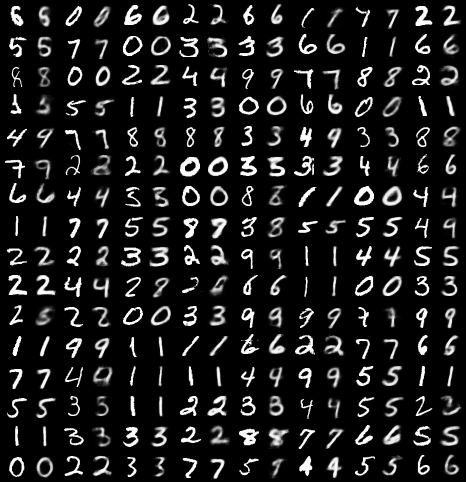 6 0 0 6 6 2 2 6 6 1 1 7 7 2 2
5 5 7 7 0 0 3 3 3 3 6 6 1 1 6 6
8 8 0 0 2 2 4 4 9 9 7 7 8 8 2 2
1 5 5 5 1 1 3 3 0 0 6 6 0 0 1 1
4 9 7 7 8 8 8 8 3 3 4 9 3 3 8 8
7 9 2 2 2 2 0 0 3 3 3 3 4 4 6 6
6 6 4 4 3 3 0 0 8 8 1 1 0 0 4 4
1 1 7 7 5 5 8 9 3 8 5 5 5 5 4 9
2 2 2 2 3 3 2 2 9 9 1 1 4 4 5 5
2 2 4 4 2 8 2 6 6 1 1 0 0 3 3
2 5 2 2 0 0 3 3 9 9 9 9 7 7 9 9
1 1 9 9 1 1 1 1 6 6 2 2 7 7 6 6
7 7 4 0 1 1 1 1 4 4 9 9 5 5 1 1
5 5 3 5 1 1 2 2 3 8 4 4 5 5 2 3
1 1 3 3 3 3 2 2 8 8 7 7 6 6 5 5
0 0 2 2 3 3 7 7 5 9 4 4 5 5 6 6